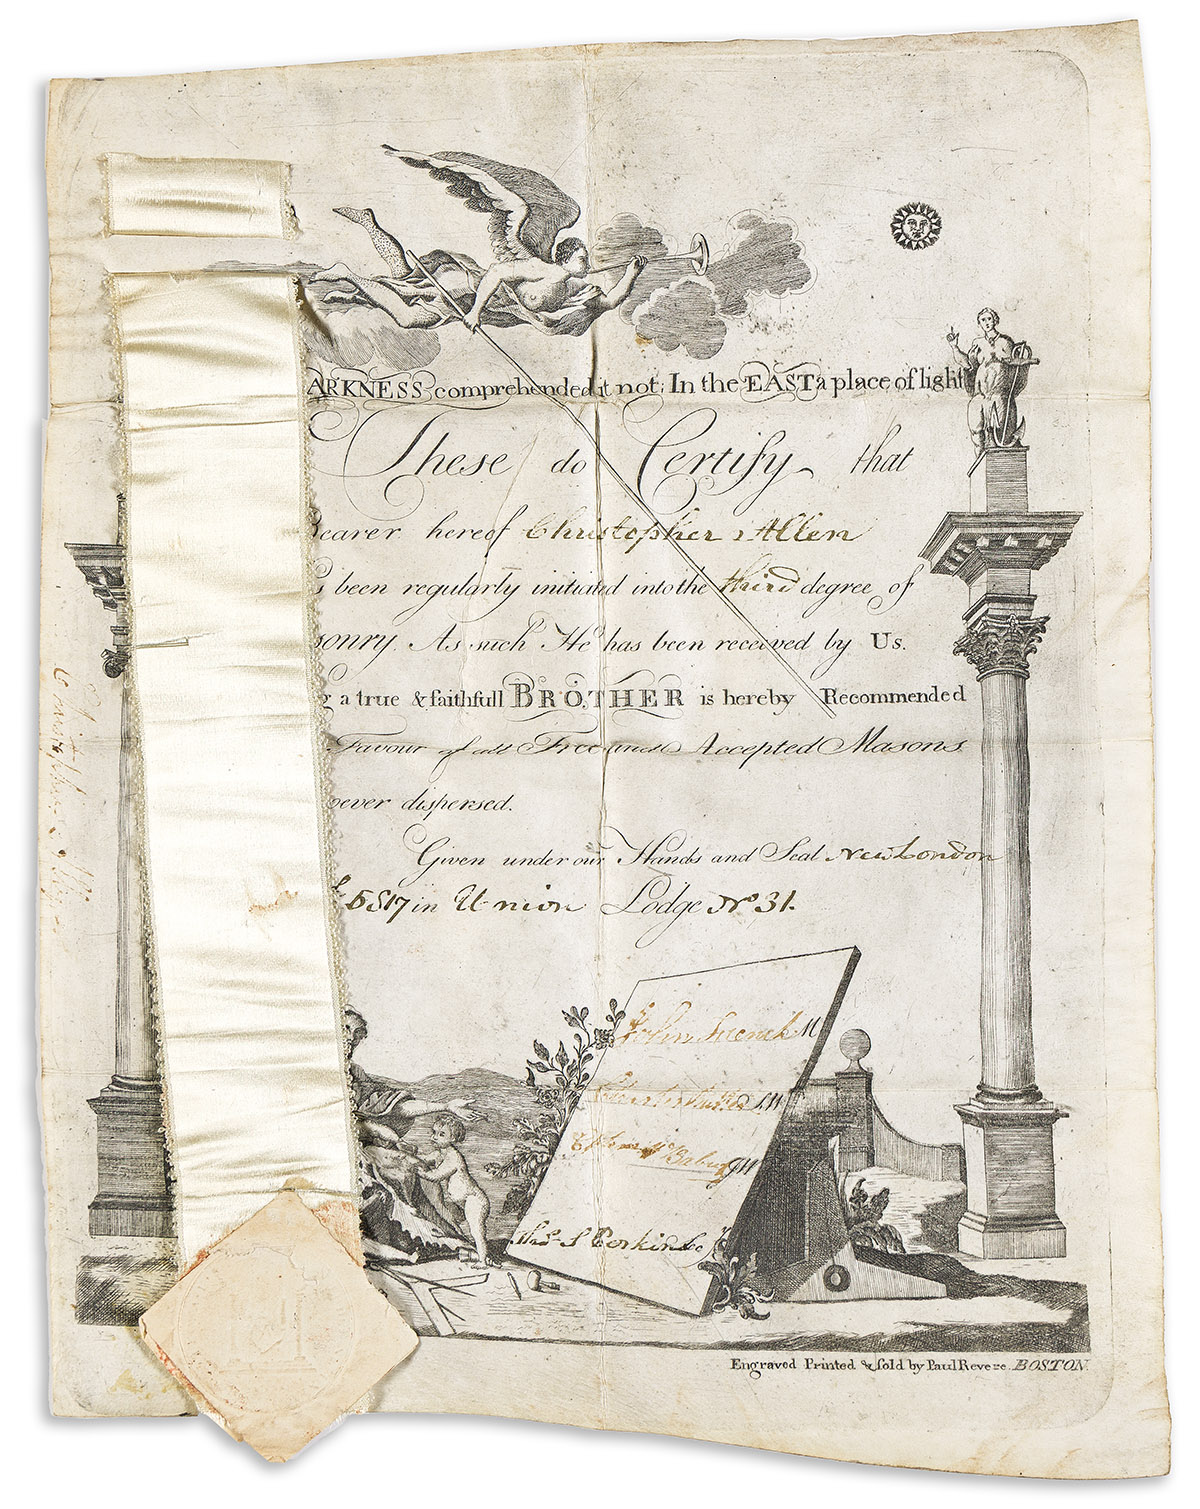 ARKNESS comprehended it not; In the EAST a place of light
These do Certify that
Bearer hereof Christopher Allen
s been regularly initiated into the third degree of
sonry. As such He has been received by Us.
g a true & faithfull BROTHER is hereby Recommended
Favour of all Free and Accepted Masons
oever dispersed.
Given under our Hands and Seal New London
5817 in Union Lodge No 31.
John French M
S.W
JW
S Perkins
Engraved Printed & Sold by Paul Revere. BOSTON.
Christopher Allen